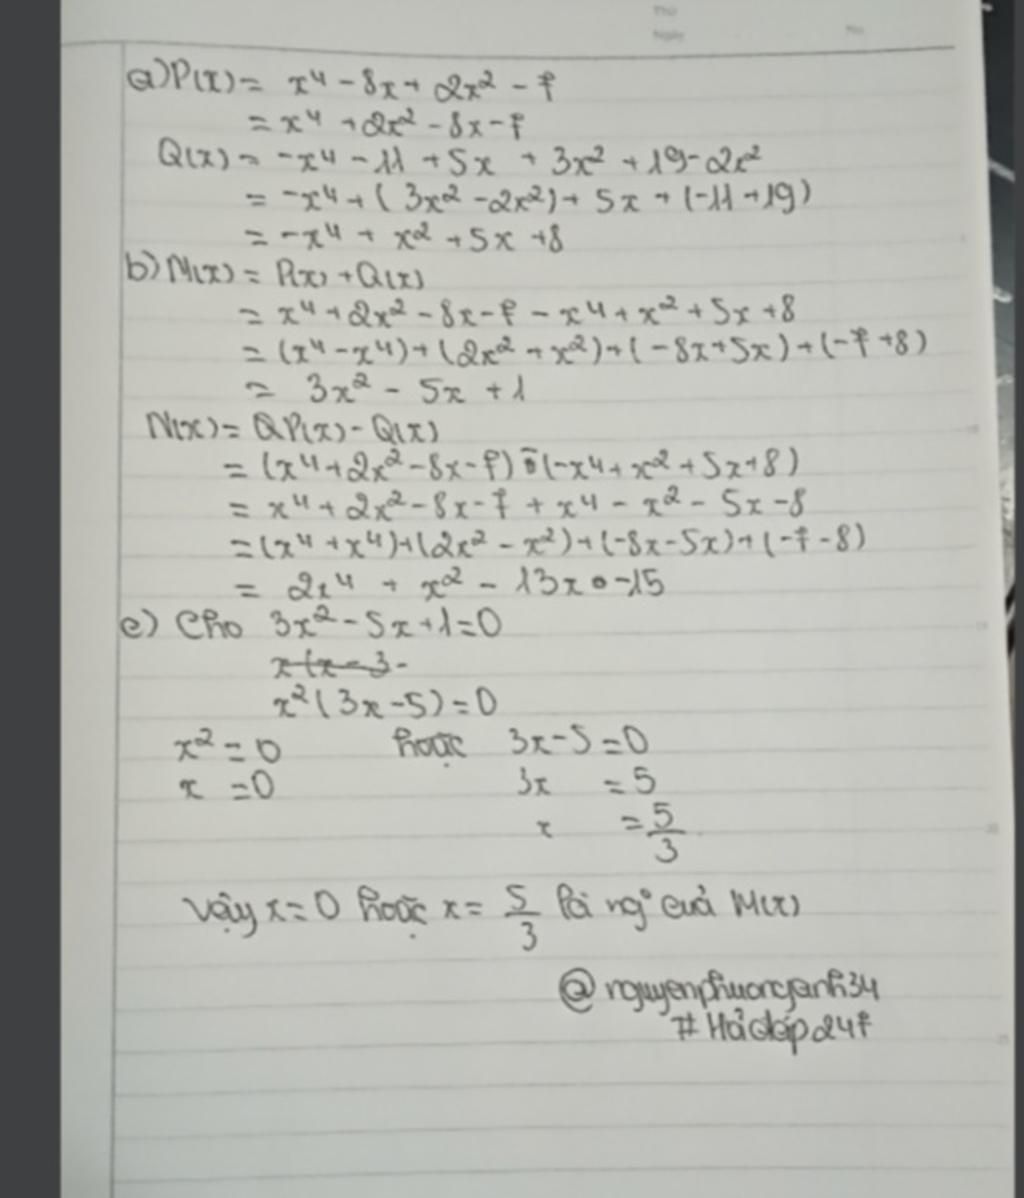 Thứ
Ngày
No.
a) P(x) = x⁴ - 8x + 2x² - 7
= x⁴ + 2x² - 8x - 7
Q(x) = -x⁴ - 11 + 5x + 3x² + 19 - 2x²
= -x⁴ + (3x² - 2x²) + 5x + (-11 + 19)
= -x⁴ + x² + 5x + 8
b) M(x) = P(x) + Q(x)
= x⁴ + 2x² - 8x - 7 - x⁴ + x² + 5x + 8
= (x⁴ - x⁴) + (2x² + x²) + (-8x + 5x) + (-7 + 8)
= 3x² - 5x + 1
N(x) = QP(x) - Q(x)
= (x⁴ + 2x² - 8x - 7) - (-x⁴ + x² + 5x + 8)
= x⁴ + 2x² - 8x - 7 + x⁴ - x² - 5x - 8
= (x⁴ + x⁴) + (2x² - x²) + (-8x - 5x) + (-7 - 8)
= 2x⁴ + x² - 13x - 15
c) Cho 3x² - 5x + 1 = 0
x(x - 3 -
x²(3x - 5) = 0
x² = 0 hoặc 3x - 5 = 0
x = 0 3x = 5
x = 5/3
Vậy x = 0 hoặc x = 5/3 là ng° của M(x)
@nguyenphuonganh34
#Hỏiđáp247